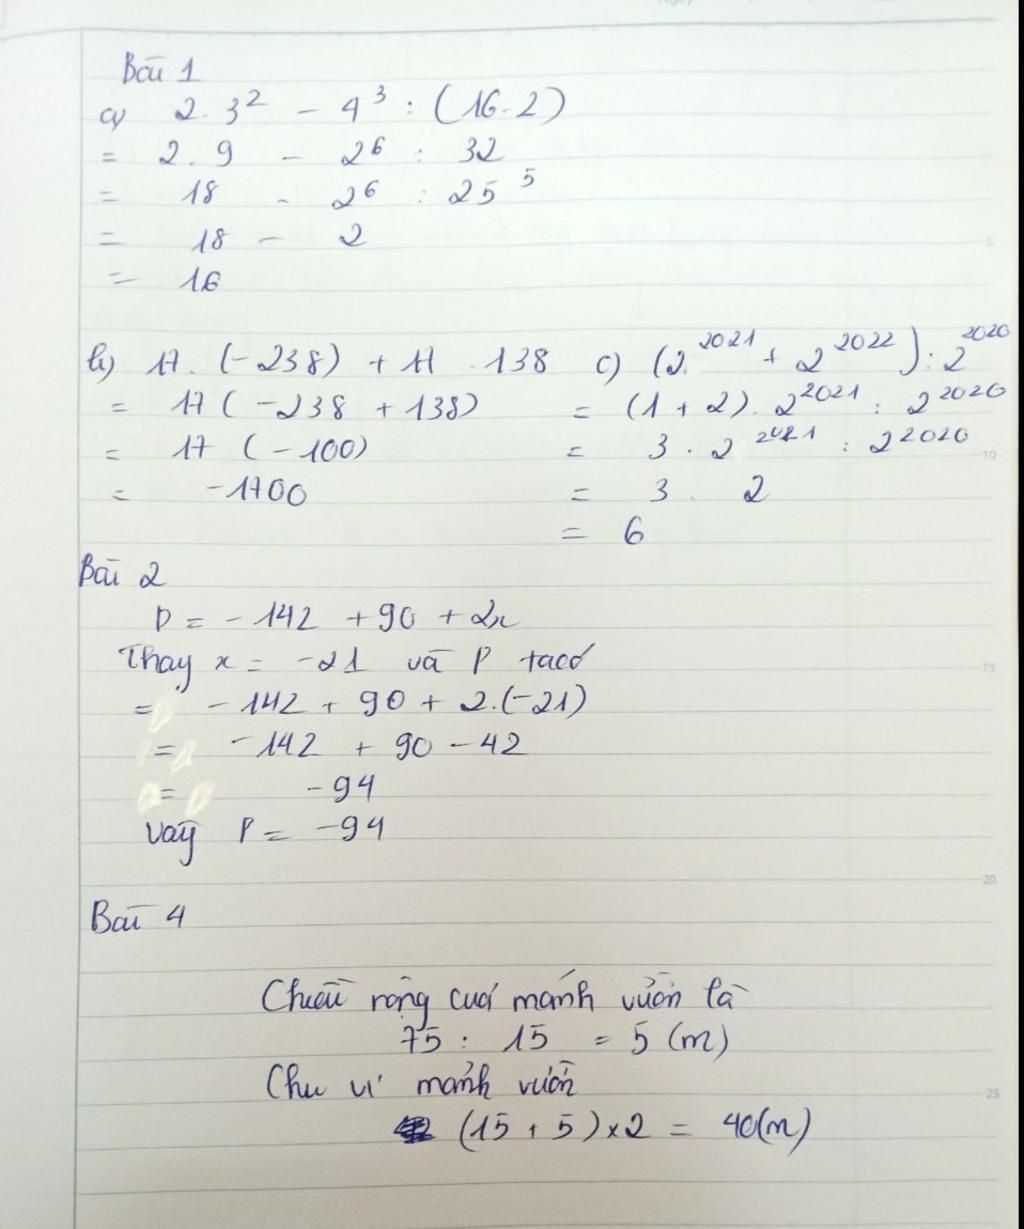 Bài 1
a) 2.3² - 4³ : (16.2)
= 2.9 - 2⁶ : 32
= 18 - 2⁶ : 25 ⁵
= 18 - 2
= 16
b) 17. (-238) + 17 . 138
= 17 ( -238 + 138)
= 17 (-100)
= -1700
c) (2²⁰²¹ + 2²⁰²²) : 2²⁰²⁰
= (1 + 2). 2²⁰²¹ : 2²⁰²⁰
= 3 . 2²⁰²¹ : 2²⁰²⁰
= 3 . 2
= 6
Bài 2
P = - 142 + 90 + 2x
Thay x = -21 và P ta có
= - 142 + 90 + 2.(-21)
= -142 + 90 - 42
= -94
Vậy P = -94
Bài 4
Chiều rộng của mảnh vườn là
75 : 15 = 5 (m)
Chu vi mảnh vườn
(15 + 5) × 2 = 40(m)
5
10
15
20
25